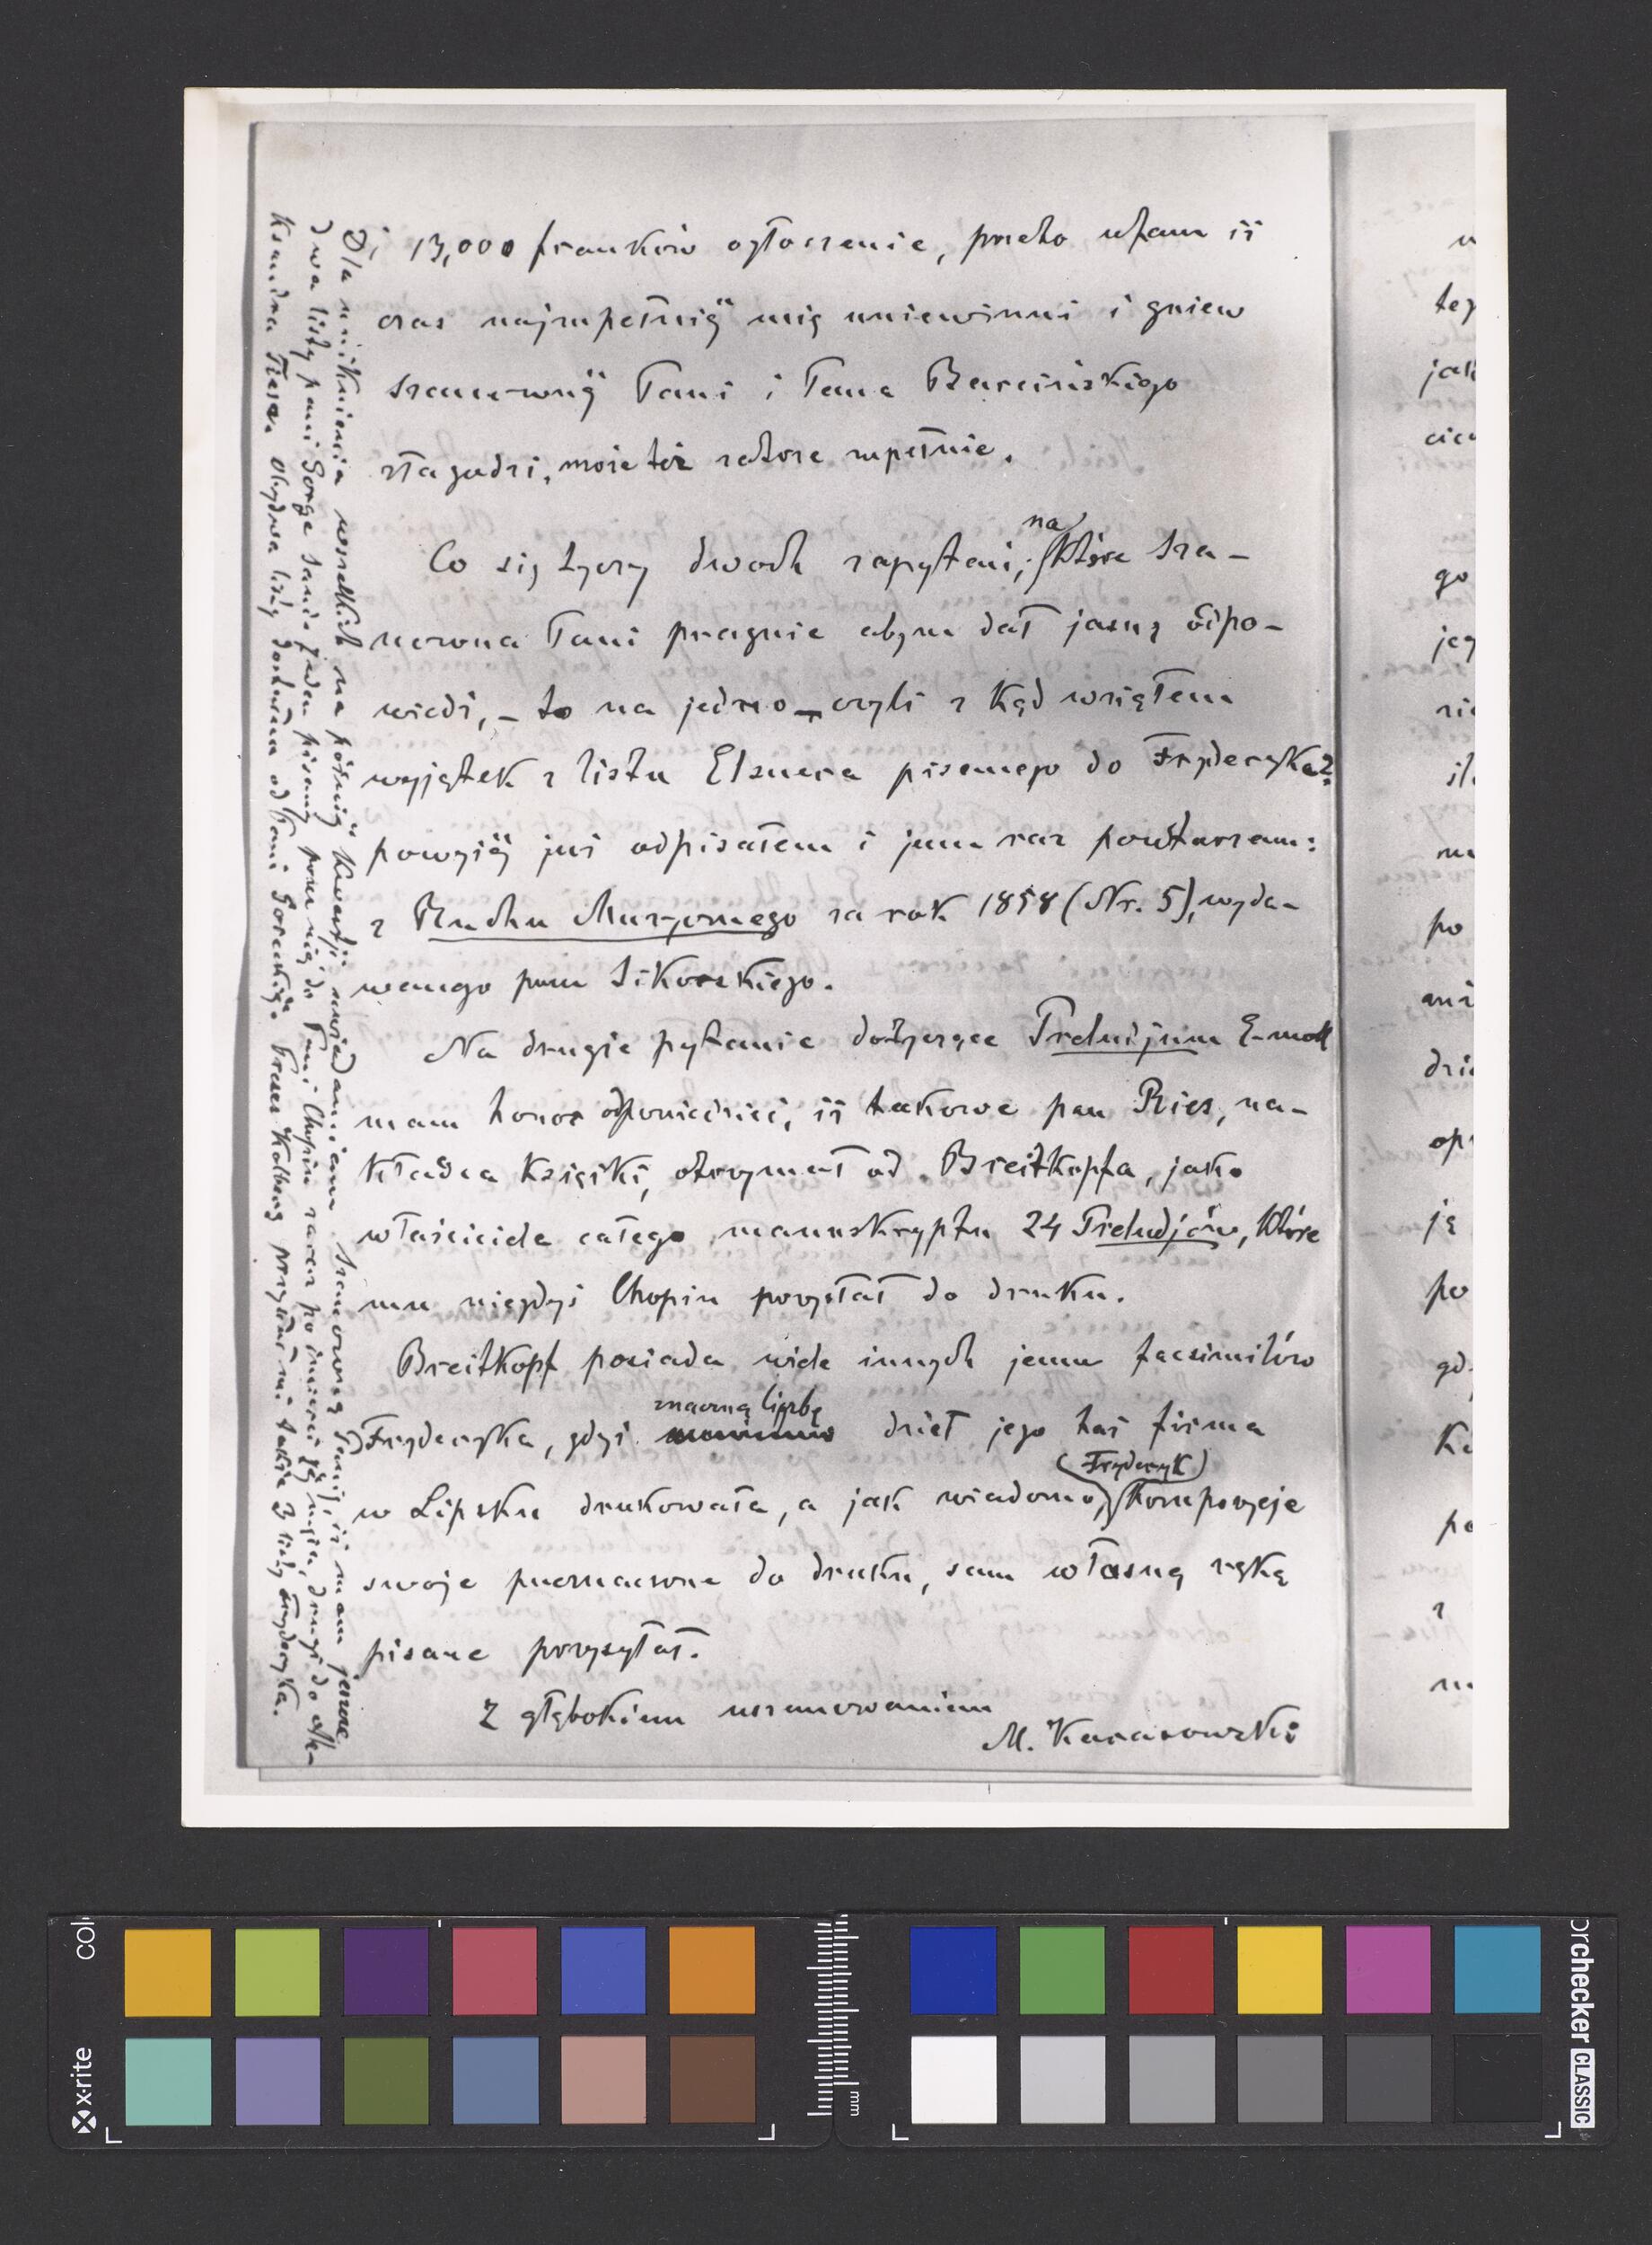 i 13,000 franków ogłoszenie, przeto ufam iż
oraz najzupełniéj mię uniewinni i gniew
szanownéj Pani i Pana Barcińskiego
złagodzi, może też zatrze zupełnie.
Co się tyczy dwóch zapytań, na które Sza-
nowna Pani pragnie abym dał jasną odpo-
wiedź, – to na jedno – czyli z kąd wziąłem
wyjątek z listu Elsnera pisanego do Fryderyka?
powyżéj już odpisałem i jeszcze raz powtarzam:
z Ruchu Muzycznego za rok 1858 (Nr. 5), wyda-
wanego przez Sikorskiego.
Na drugie pytanie dotyczące Preludijum E-moll
mam honor odpowiedzieć, iż takowe pan Ries, na-
kładca książki, otrzymał od Breitkopfa, jako
właściciela całego manuskryptu 24 Preludjów, które
mu niegdyś Chopin przysłał do druku.
Breitkopf posiada wiele innych jeszcze facsimilów
Fryderyka, gdyż znaczną liczbę dzieł jego taż firma
w Lipsku drukowała, a jak wiadomo, (Fryderyk) kompozycje
swoje przeznaczone do druku, sam własną ręką
pisane przysyłał.
Z głębokiem uszanowaniem
M. Karasowski
Dla uniknienia wszelkich na późniéj kwestji zawiadamiam Szanowną Panią, iż mam jeszcze
dwa listy pani George Sand: jeden pisany przez nią do Pani Chopin zaraz po śmierci jéj męża, drugi do Ale-
ksandra Thesa. Obydwa listy dostałem od Pani Goreckiéj. Prezes Kolberg przysłał mi także 3 listy Fryderyka.
w
tej
cie
go
jeg
nie
po
dzi
opr
ją
po
gd
Ko
po
z